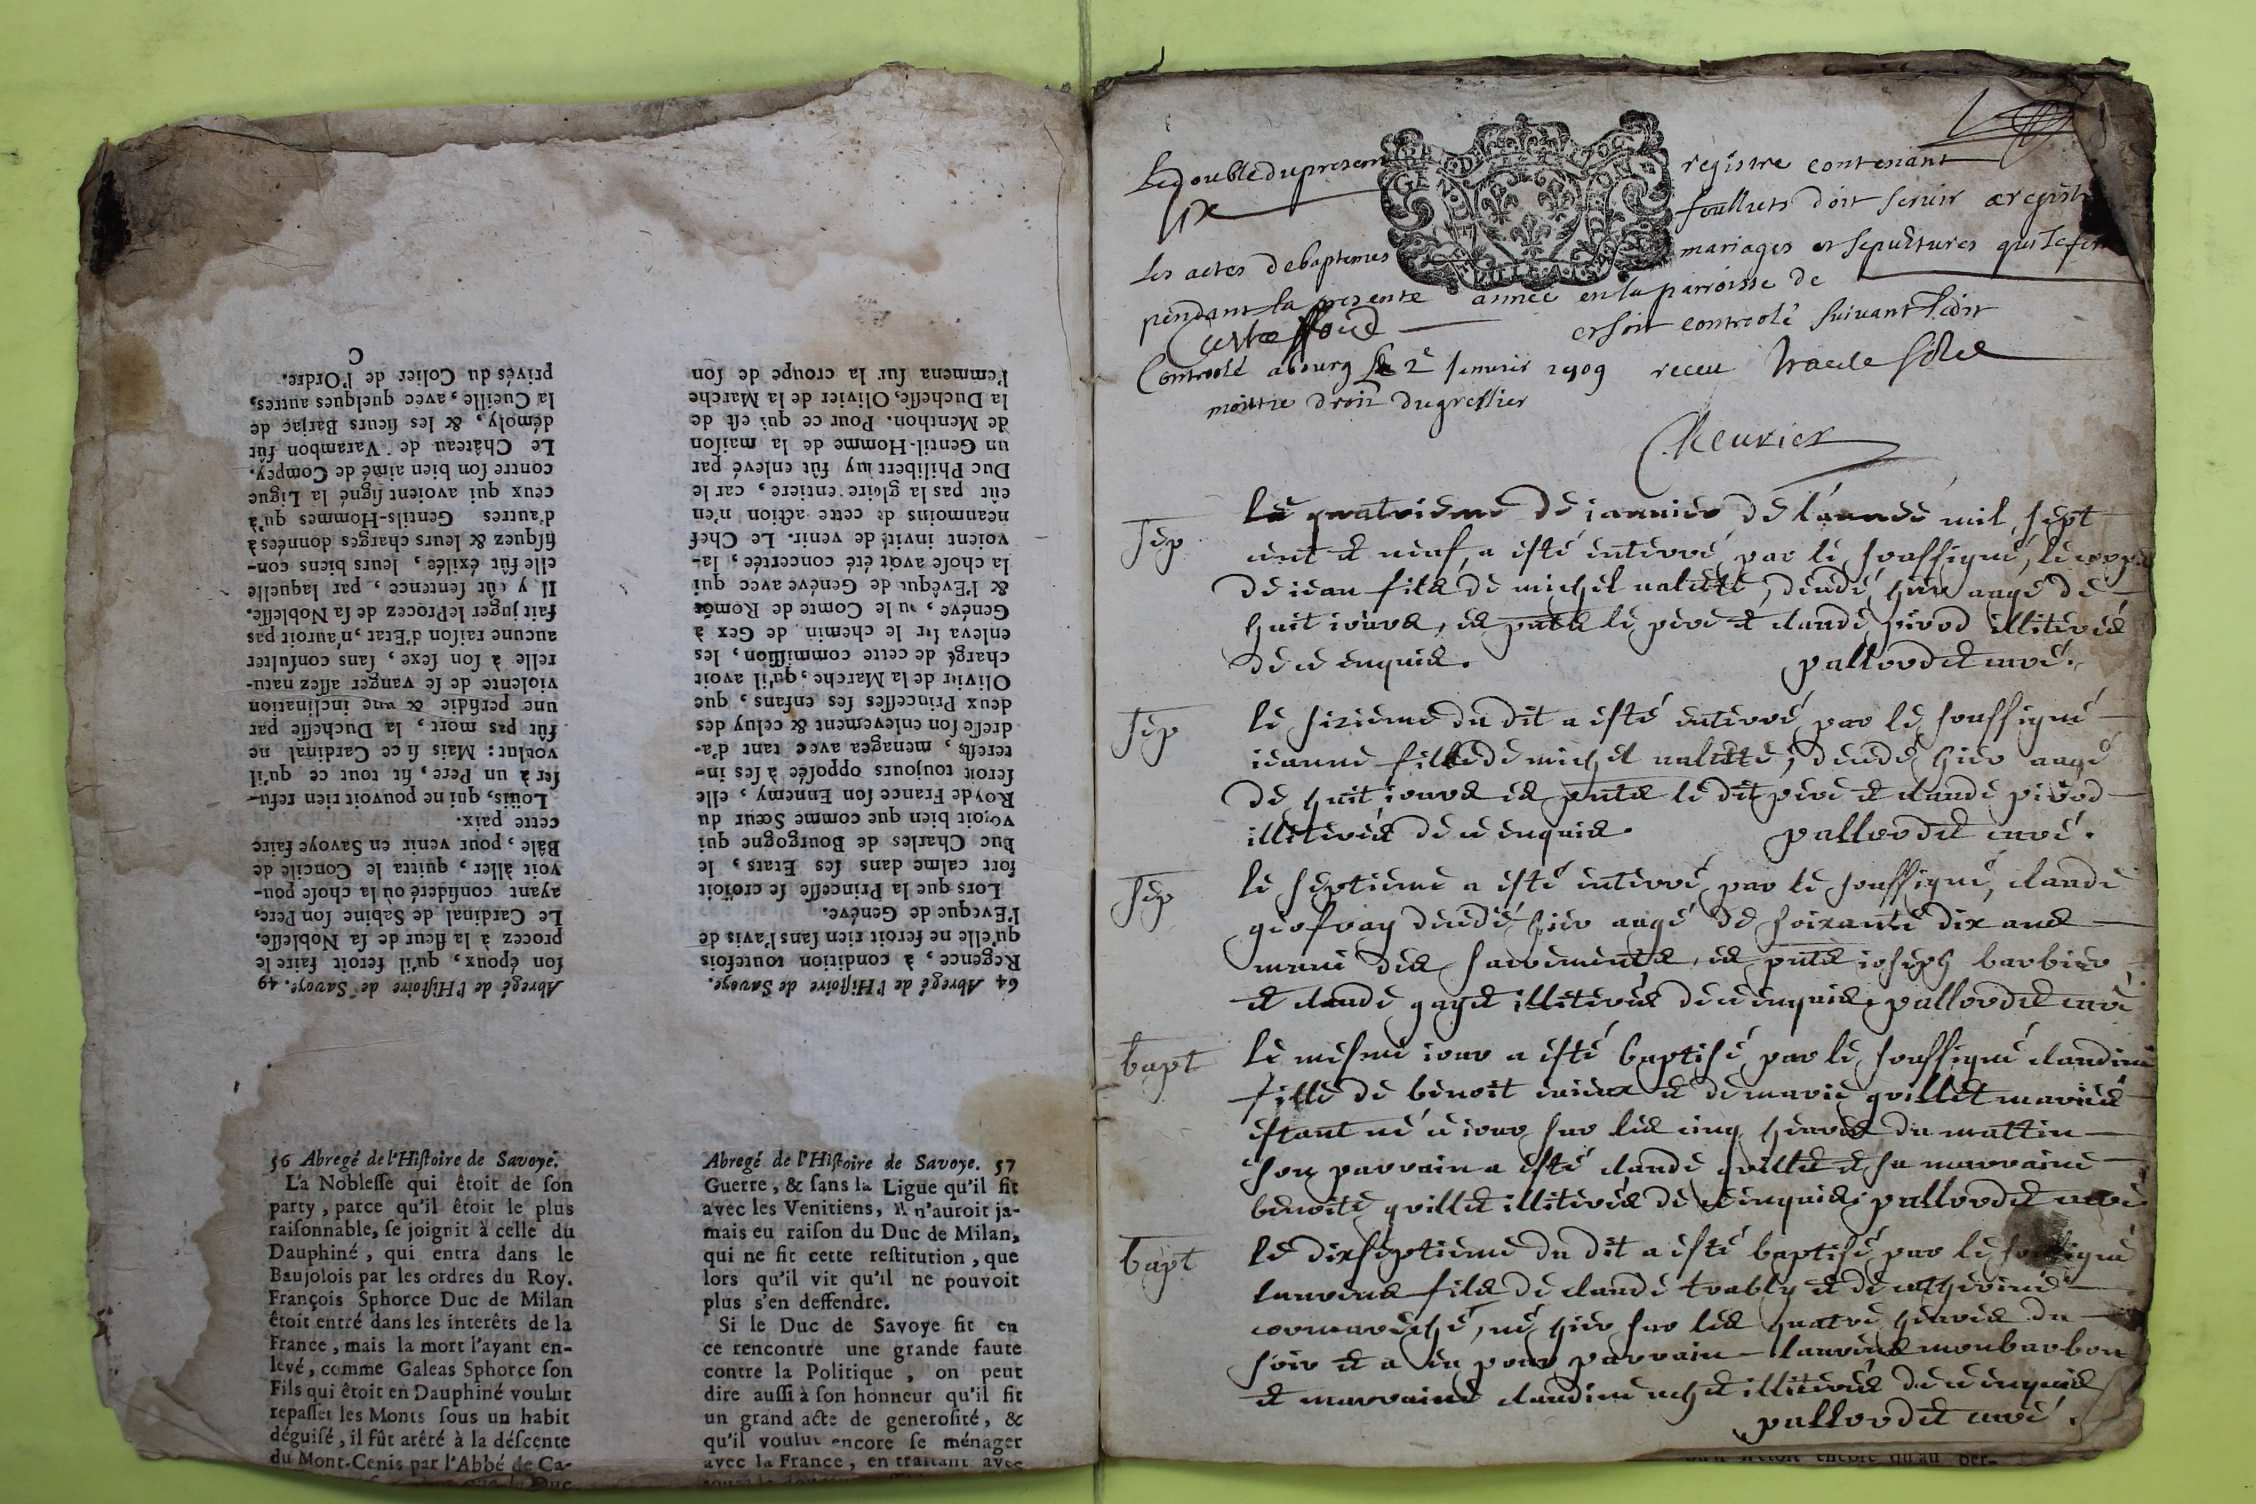 Abregé de l'Histoire de Savoye. 49
son époux, qu'il feroit faire le
procez à la fleur de sa Noblesse.
Le Cardinal de Sabine son Pere,
ayant consideré où la chose pou-
voit aller, quitta le Concile de
Bâle, pour venir en Savoye faire
cette paix.
Loüis, qui ne pouvoit rien refu-
ser à un Pere, fit tout ce qu'il
voulut: Mais si ce Cardinal ne
fût pas mort, la Duchesse par
une perfidie & une inclination
violente de se vanger assez natu-
relle à son sexe, sans consulter
aucune raison d'Etat, n'auroit pas
fait juger le Procez de sa Noblesse.
Il y eût sentence, par laquelle
elle fût éxilée, leurs biens con-
fisquez & leurs charges données à
d'autres Gentils-Hommes qu'à
ceux qui avoient signé la Ligue
contre son bien aimé de Compey.
Le Château de Varambon fût
démoly, & les sieurs Barjac de
la Cueille, avec quelques autres,
privés du Colier de l'Ordre.
C
64 Abregé de l'Histoire de Savoye.
Regence, à condition toutefois
qu'elle ne feroit rien sans l'avis de
l'Evêque de Genéve.
Lors que la Princesse se croïoit
fort calme dans ses Etats, le
Duc Charles de Bourgogne qui
voyoit bien que comme Sœur du
Roy de France son Ennemy, elle
seroit toujours opposée à ses in-
terests, menagea avec tant d'a-
dresse son enlevement & celuy des
deux Princesses ses enfans, que
Olivier de la Marche, qu'il avoit
chargé de cette commission, les
enleva sur le chemin de Gex à
Genéve, ou le Comte de Romôt
& l'Evêque de Genéve avec qui
la chose avoit été concertée, la-
voient invité de venir. Le Chef
neanmoins de cette action n'en
eût pas la gloire entiere, car le
Duc Philibert luy fût enlevé par
un Gentil-Homme de la maison
de Menthon. Pour ce qui est de
la Duchesse, Olivier de la Marche
l'emmena sur la croupe de son
56 Abregé de l'Histoire de Savoye.
La Noblesse qui êtoit de son
party, parce qu'il êtoit le plus
raisonnable, se joignit à celle du
Dauphiné, qui entra dans le
Baujolois par les ordres du Roy.
François Sphorce Duc de Milan
êtoit entré dans les interêts de la
France, mais la mort l'ayant en-
levé, comme Galeas Sphorce son
Fils qui êtoit en Dauphiné voulut
repasser les Monts sous un habit
déguisé, il fût arêté à la déscente
du Mont-Cenis par l'Abbé de Ca-
Abregé de l'Histoire de Savoye. 57
Guerre, & sans la Ligue qu'il fit
avec les Venitiens, il n'auroit ja-
mais eu raison du Duc de Milan,
qui ne fit cette restitution, que
lors qu'il vit qu'il ne pouvoit
plus s'en deffendre.
Si le Duc de Savoye fit en
ce rencontre une grande faute
contre la Politique, on peut
dire aussi à son honneur qu'il fit
un grand acte de generosité, &
qu'il voulut encore se ménager
avec la France, en traitant avec
Le double du present registre contenant
six feullets doit servir a registr
les actes de baptemes mariages et sepultures qui se fer
pendant la presente année en la parroisse de
Curtaffond et soit controolé suivant l'edit
Controolé a bourg le 2e Janvier 1709 receu
moittie droit du greffier
Cheurier
sep
le quatrieme de ianvier de l'année mil sept
cent et neuf a esté enterré par le soussigné, le corps
de iean fils de michel valette, decedé hier aagé de
huit iours, es pnts le père et claude pirod illiterés
de ce enquis. pallordet curé.
sep
le sixieme du dit a esté enterré par le soussigné
ieanne fille de michel valette, decedé hier aagé
de huit iours es pnts le dit père et claude pirod
illiterés de ce enquis. pallordet curé.
sep
le septieme a esté enterré par le soussigné, claude
geofray decedé hier aagé de soixante dix ans
muni des sacrements, es pnts ioseph barbier
et claude gaget illiterés de ce enquis. pallordet curé
bapt
le mesme iour a esté baptisé par le soussigné claudine
fille de benoit et de marie quillet mariés
estant né ce iour sur les cinq heures du mattin
son parrain a esté claude quillet et sa marraine
benoite quillet illiterés de ce enquis. pallordet curé
bapt
le dixseptieme du dit a esté baptisé par le soussigné
laurens fils de claude trably et de catherine
cormareché, né hier sur les quatre heures du
soir et a eu pour parrain laurens monbarbon
et marraine claudine illiterés de ce enquis
pallordet curé.